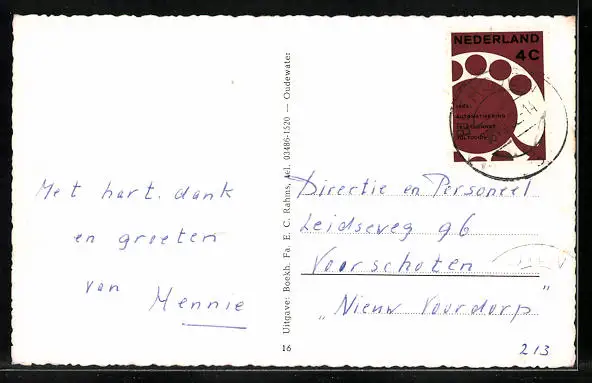 NEDERLAND
4C
1962
AUTOMATISERING
TELEFOONNET
VOLTOOID
Met hart. dank
en groeten
van
Mennie
Uitgave: Boekh. Fa. E. C. Rahms, tel. 03486-1520 — Oudewater
16
Directie en Personeel
Leidseweg 96
Voorschoten
„Nieuw Voordorp"
213